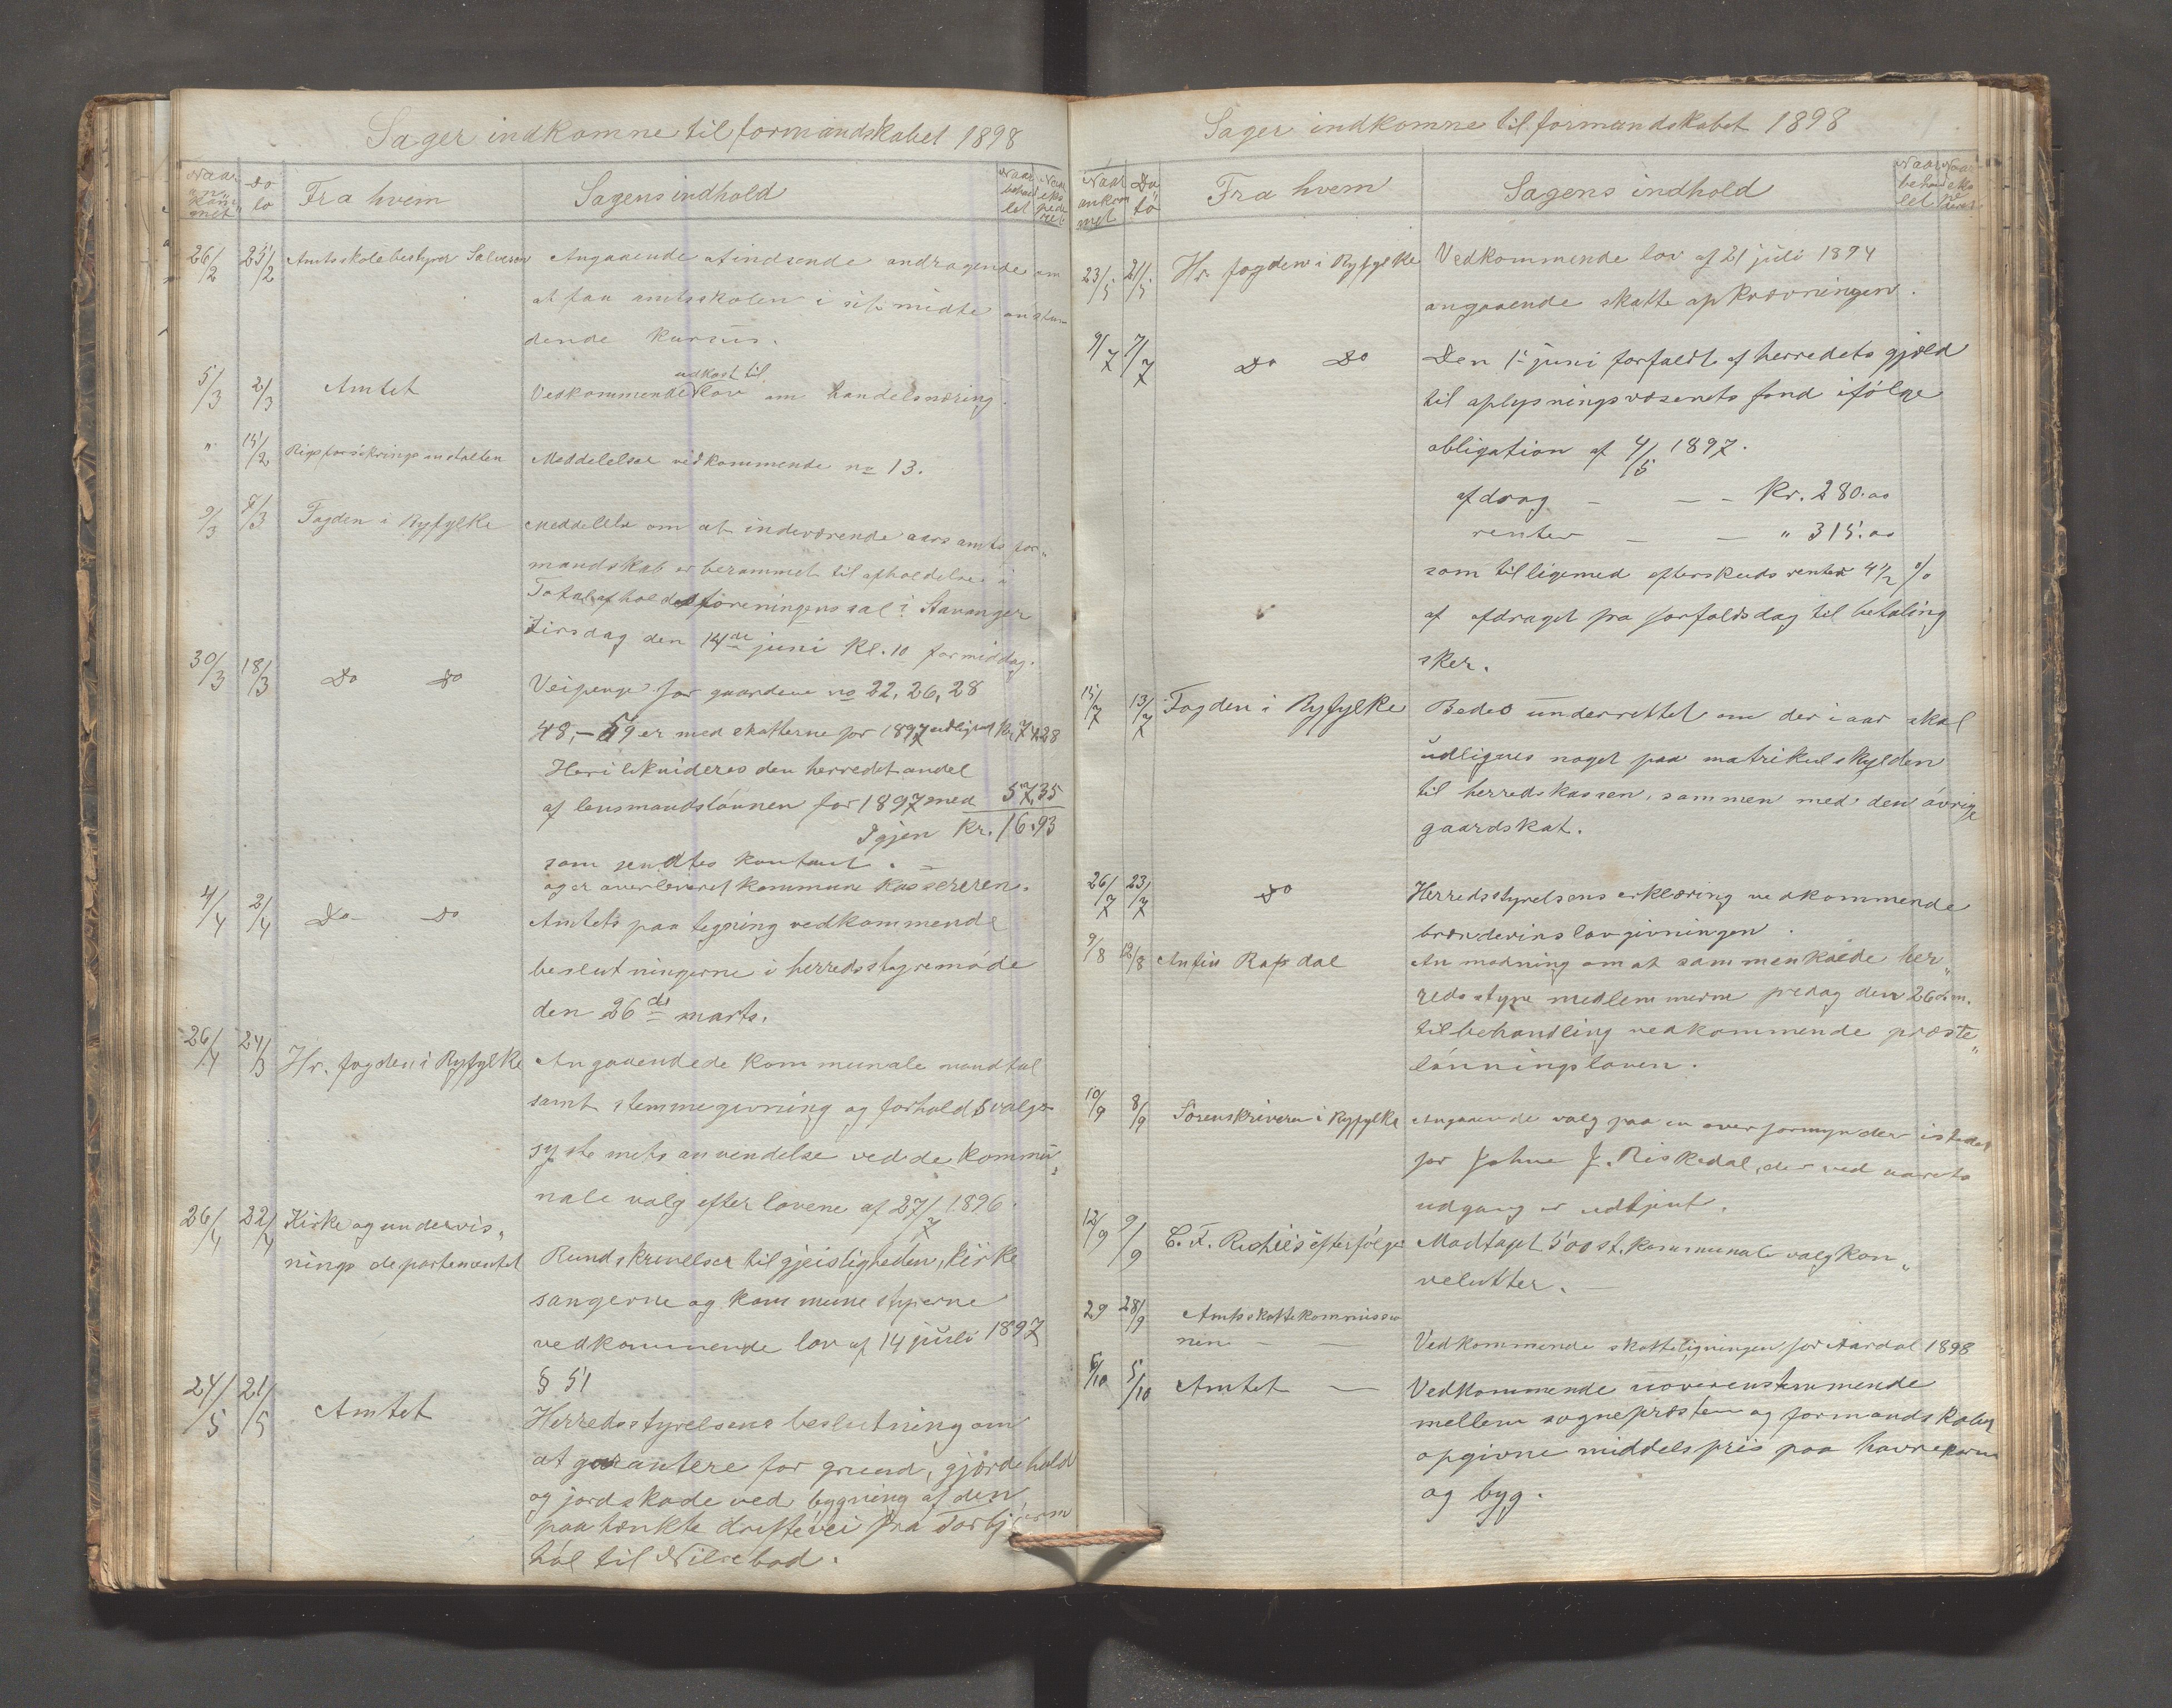 Sager indkomne til formandskabet 1898
Naar ankommet
Dato
Fra hvem
Sagens indhold
Naar behandlet
Naar ekspederet
26/2 25/2 Amtsskolebestyrer Salvesen Angaaende at indsende andragende om
at faa amtsskolen i sit midte
dende kursus.
5/3 2/3 Amtet Vedkommende udkast til lov om handelsnæring.
" 15/2 Rigsforsikringsanstalten Meddelelser vedkommende no 13.
9/3 8/3 Fogden i Ryfylke Meddelelse om at indeværende aars amtsfor„
mandskab er berammet til afholdelse i
Totalafholdsforeningens sal i Stavanger
Tirsdag den 14de juni kl. 10 formiddag.
30/3 18/3 Do Do Veipenge for gaardene no 22, 26, 28
48, - 59 er med skatterne for 1897 udlignet kr 74.28
Heri likvideres den herredet andel
af lensmandslønnen for 1897 med 57,35
Igjen kr. 16.93
som sendtes kontant. —
og er overleveret kommune kassereren.
4/4 2/4 Do Do Amtets paategning vedkommende
beslutningerne i herredsstyremøde
den 26de marts.
26/4 24/3 Hr. fogden i Ryfylke Angaaende de kommunale mandtal
samt stemmegivning og forholdsvalgs
systemets anvendelse ved de kommu„
nale valg efter lovene af 27/7 1896.
26/4 22/4 Kirke og undervis„ Rundskrivelser til gjeistligheden, kirke
nings departementet sangerne og kommunestyrerne
vedkommende lov af 14 juli 1897
§ 51
24/5 21/5 Amtet Herredsstyrelsens beslutning om
at garantere for grund, gjærdehold
og jordskade ved bygning af den
paatænkte driftevei fra Torbjørns
hól til Nilsebod.
Sager indkomne til formandskabet 1898
Naar ankommet
Dato
Fra hvem
Sagens indhold
Naar behandlet
Naar ekspederet
23/5 21/5 Hr. fogden i Ryfylke Vedkommende lov af 21 juli 1894
angaaende skatteopkrævningen.
9/7 7/7 Do Do Den 1ste juni forfaldt af herredets gjæld
til oplysningsvæsenets fond ifölge
obligation af 4/5 1897.
afdrag — — — kr. 280.00
renter — — " 315.00
som tilligemed efterskudsrenter 4 1/2 %
af afdraget fra forfaldsdag til betaling
sker.
15/7 13/7 Fogden i Ryfylke Bedes underrettet om der i aar skal
udlignes noget paa matrikulskylden
til herredskassen, sammen med den øvrige
gaardskat.
26/7 23/7 Do Herredsstyrelsens erklæring vedkommende
brænderinslovgivningen.
9/8 12/8 Anfin Rapsdal Anmodning om at sammenkalde her„
redsstyre medlemmerne fredag den 26 d.m.
til behandling vedkommende præste„
lønningsloven.
10/9 8/9 Sorenskriveren i Ryfylke Angaaende valg paa en overformynder istedet
for Johne J. Riskedal, der ved aarets
udgang er udtjent.
12/9 9/9 C. F. efterfölger Modtaget 500 st. kommunale valgkon„
velutter. —
29 28/9 Amtsskattekommissio
nen — — Vedkommende skatteligningen for Aardal 1898
6/10 5/10 Amtet — Vedkommende uoverenstemmende
mellem sognepræsten og formandskabet
opgivne middelspris paa havrekorn
og byg.